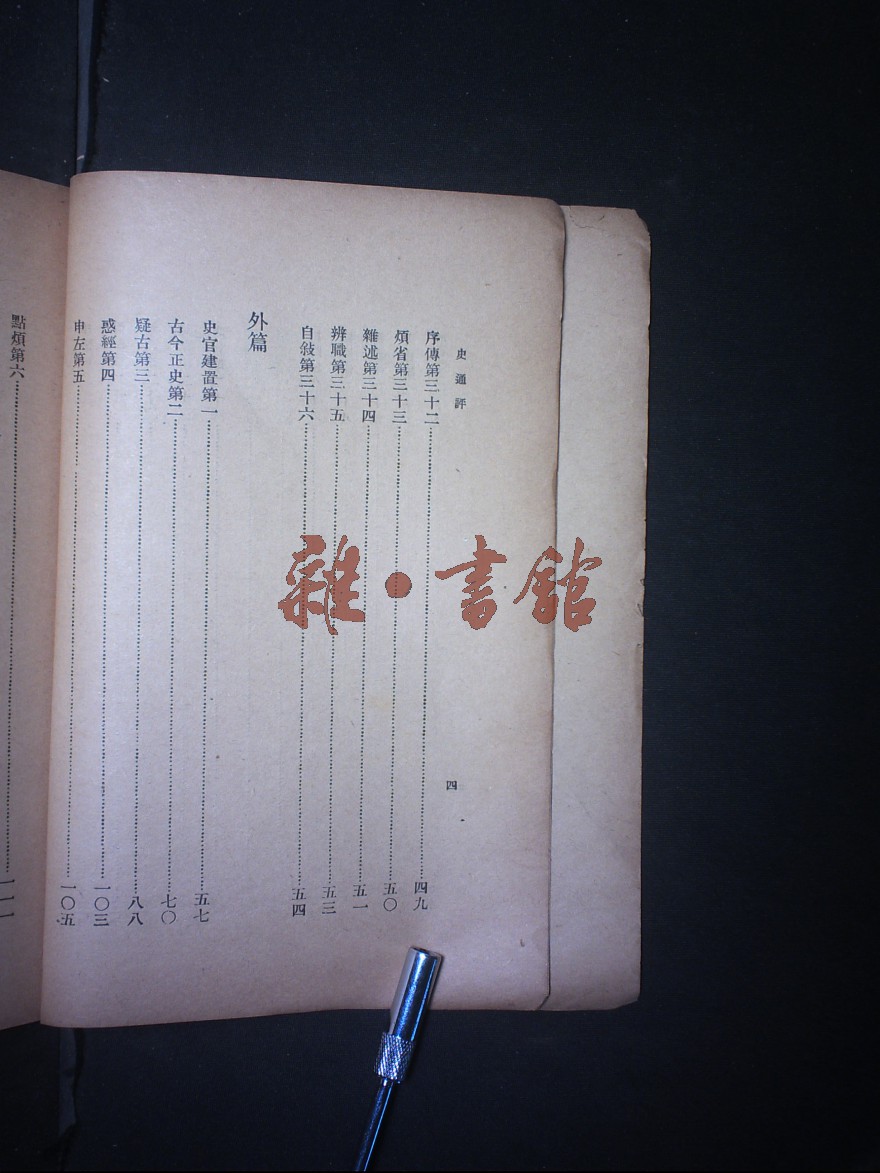 史通評
四
序傳第三十二……四九
煩省第三十三……五〇
雜述第三十四……五一
辨職第三十五……五三
自敍第三十六……五四
外篇
史官建置第一……五七
古今正史第二……七〇
疑古第三……八八
惑經第四……一〇三
申左第五……一〇五
點煩第六……一一一
雜·書館